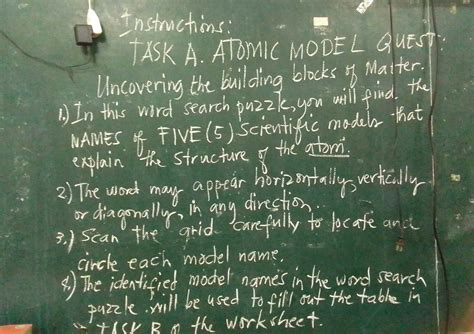 Instructions:
TASK A. ATOMIC MODEL QUEST:
Uncovering the building blocks of Matter.
1.) In this word search puzzle, you will find the
NAMES of FIVE (5) Scientific models that
explain the structure of the atom.
2.) The word may appear horizontally, vertically
or diagonally, in any direction.
3.) Scan the grid carefully to locate and
circle each model name.
4.) The identified model names in the word search
puzzle will be used to fill out the table in
TASK B on the worksheet.